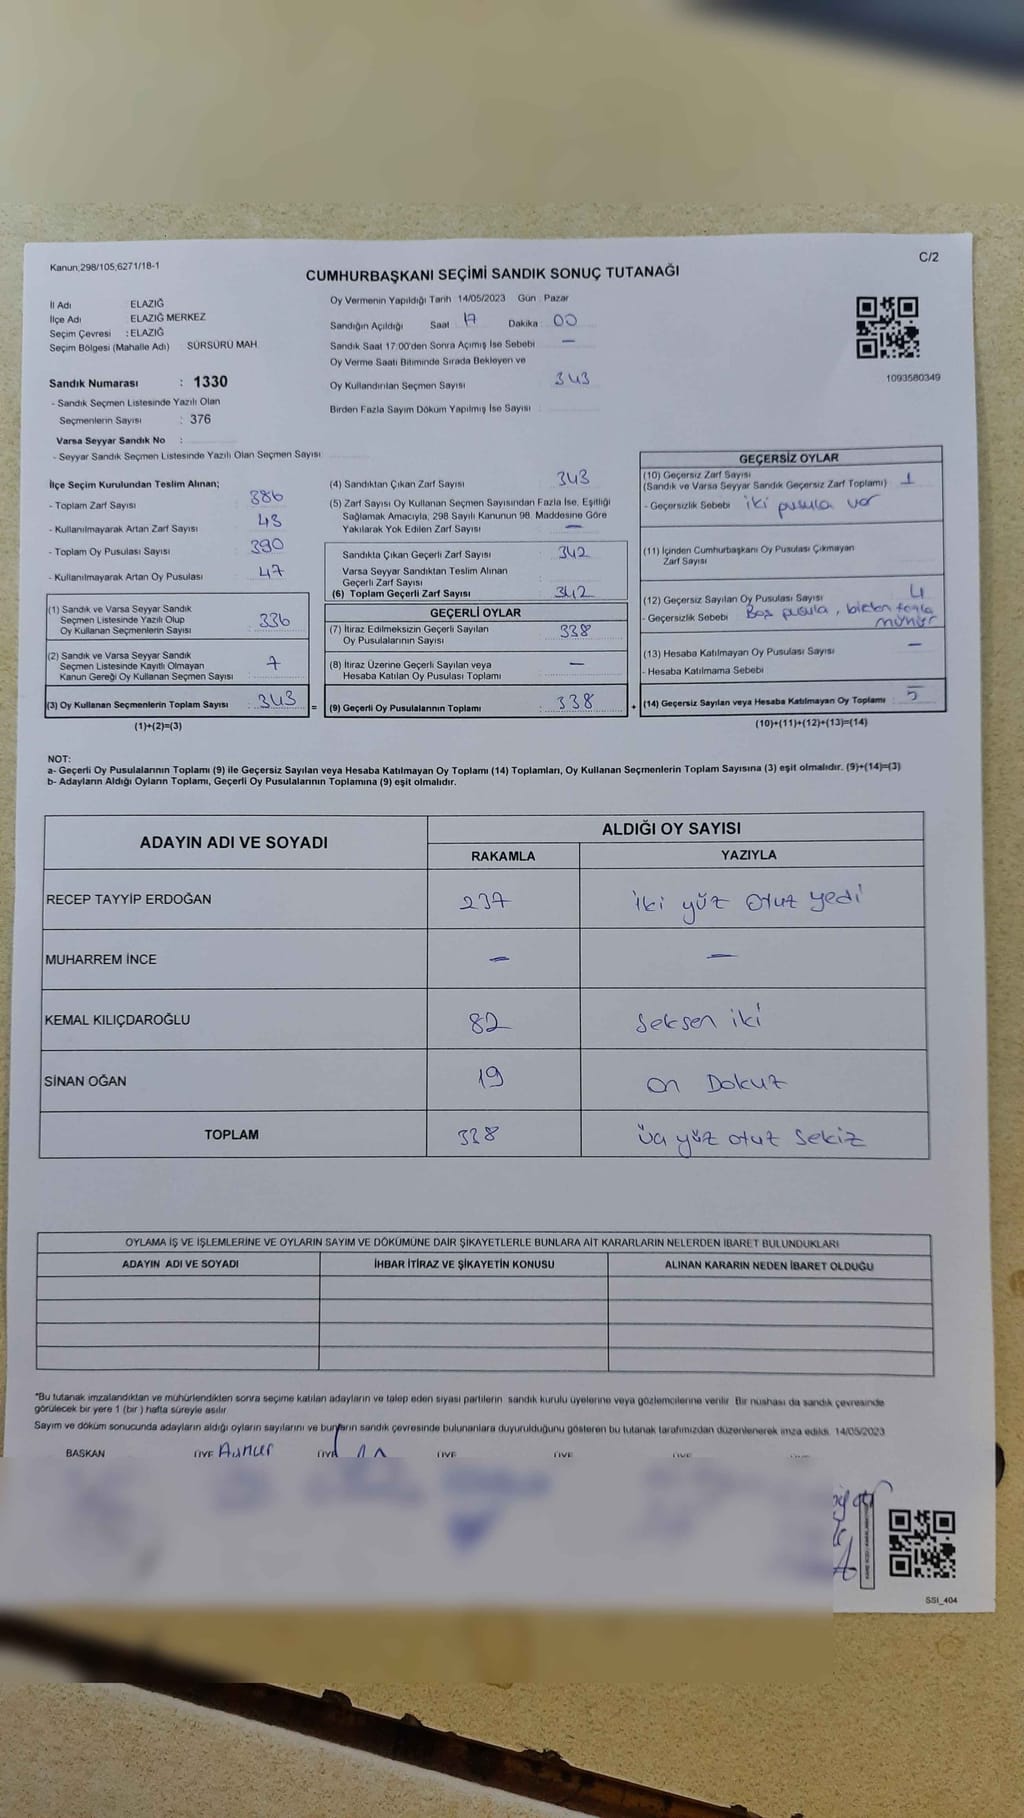 Kanun;298/105,6271/18-1
C/2
CUMHURBAŞKANI SEÇİMİ SANDIK SONUÇ TUTANAĞI
İl Adı ELAZIĞ
İlçe Adı ELAZIĞ MERKEZ
Seçim Çevresi : ELAZIĞ
Seçim Bölgesi (Mahalle Adı) SÜRSÜRÜ MAH.
Sandık Numarası : 1330
- Sandık Seçmen Listesinde Yazılı Olan
Seçmenlerin Sayısı : 376
Varsa Seyyar Sandık No :
- Seyyar Sandık Seçmen Listesinde Yazılı Olan Seçmen Sayısı
Oy Vermenin Yapıldığı Tarih 14/05/2023 Gün : Pazar
Sandığın Açıldığı Saat 17 Dakika : 00
Sandık Saat 17:00'den Sonra Açımış İse Sebebi —
Oy Verme Saati Bitiminde Sırada Bekleyen ve
Oy Kullandırılan Seçmen Sayısı 343
Birden Fazla Sayım Döküm Yapılmış İse Sayısı
1093580349
İlçe Seçim Kurulundan Teslim Alınan;
- Toplam Zarf Sayısı 386
- Kullanılmayarak Artan Zarf Sayısı 43
- Toplam Oy Pusulası Sayısı 390
- Kullanılmayarak Artan Oy Pusulası 47
(1) Sandık ve Varsa Seyyar Sandık
Seçmen Listesinde Yazılı Olup
Oy Kullanan Seçmenlerin Sayısı 336
(2) Sandık ve Varsa Seyyar Sandık
Seçmen Listesinde Kayıtlı Olmayan
Kanun Gereği Oy Kullanan Seçmen Sayısı 7
(3) Oy Kullanan Seçmenlerin Toplam Sayısı : 343 =
(1)+(2)=(3)
(4) Sandıktan Çıkan Zarf Sayısı 343
(5) Zarf Sayısı Oy Kullanan Seçmen Sayısından Fazla İse, Eşitliği
Sağlamak Amacıyla, 298 Sayılı Kanunun 98. Maddesine Göre
Yakılarak Yok Edilen Zarf Sayısı —
Sandıkta Çıkan Geçerli Zarf Sayısı 342
Varsa Seyyar Sandıktan Teslim Alınan
Geçerli Zarf Sayısı
(6) Toplam Geçerli Zarf Sayısı 342
GEÇERLİ OYLAR
(7) İtiraz Edilmeksizin Geçerli Sayılan
Oy Pusulalarının Sayısı 338
(8) İtiraz Üzerine Geçerli Sayılan veya
Hesaba Katılan Oy Pusulası Toplamı —
(9) Geçerli Oy Pusulalarının Toplamı : 338 +
GEÇERSİZ OYLAR
(10) Geçersiz Zarf Sayısı
(Sandık ve Varsa Seyyar Sandık Geçersiz Zarf Toplamı) 1
- Geçersizlik Sebebi iki pusula var
(11) İçinden Cumhurbaşkanı Oy Pusulası Çıkmayan
Zarf Sayısı
(12) Geçersiz Sayılan Oy Pusulası Sayısı 4
- Geçersizlik Sebebi Boş pusula, birden fazla
mühür
(13) Hesaba Katılmayan Oy Pusulası Sayısı —
- Hesaba Katılmama Sebebi
(14) Geçersiz Sayılan veya Hesaba Katılmayan Oy Toplamı 5
(10)+(11)+(12)+(13)=(14)
NOT:
a- Geçerli Oy Pusulalarının Toplamı (9) ile Geçersiz Sayılan veya Hesaba Katılmayan Oy Toplamı (14) Toplamları, Oy Kullanan Seçmenlerin Toplam Sayısına (3) eşit olmalıdır. (9)+(14)=(3)
b- Adayların Aldığı Oyların Toplamı, Geçerli Oy Pusulalarının Toplamına (9) eşit olmalıdır.
ADAYIN ADI VE SOYADI ALDIĞI OY SAYISI
RAKAMLA YAZIYLA
RECEP TAYYİP ERDOĞAN 237 iki yüz otuz yedi
MUHARREM İNCE — —
KEMAL KILIÇDAROĞLU 82 Seksen iki
SİNAN OĞAN 19 on Dokuz
TOPLAM 338 üç yüz otuz sekiz
OYLAMA İŞ VE İŞLEMLERİNE VE OYLARIN SAYIM VE DÖKÜMÜNE DAİR ŞİKAYETLERLE BUNLARA AİT KARARLARIN NELERDEN İBARET BULUNDUKLARI
ADAYIN ADI VE SOYADI İHBAR İTİRAZ VE ŞİKAYETİN KONUSU ALINAN KARARIN NEDEN İBARET OLDUĞU
*Bu tutanak imzalandıktan ve mühürlendikten sonra seçime katılan adayların ve talep eden siyasi partilerin sandık kurulu üyelerine veya gözlemcilerine verilir. Bir nüshası da sandık çevresinde
görülecek bir yere 1 (bir) hafta süreyle asılır.
Sayım ve döküm sonucunda adayların aldığı oyların sayılarını ve bunların sandık çevresinde bulunanlara duyurulduğunu gösteren bu tutanak tarafımızdan düzenlenerek imza edildi. 14/05/2023
BAŞKAN ÜYE ÜYE ÜYE ÜYE ÜYE
SSI_404